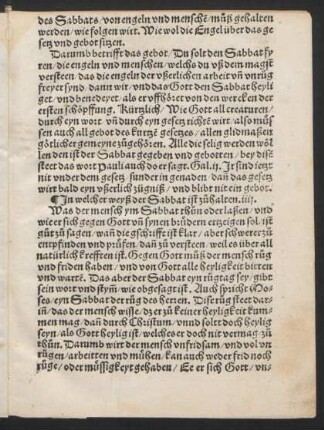 des Sabbats/ von engeln vnd menschē/ müß gehalten
werden/ wie folgen wirt. Wie wol die Engel über das ge
setz vnd gebot sitzen.
Darumb betrifft das gebot/ Du solt den Sabbat fy
ren/ die engeln vnd menschen/ welchs du vß dem magst
versteen/ das die engeln der vßerlichen arbeit vñ vnrůg
freyet synd/ dann wir/ vnd das Gott den Sabbat heyli
get/ vnd benedeyet/ als er vffhöret von den wercken der
ersten schöpffung. Kürtzlich/ Wie Gott all creaturen/
durch eyn wort/ vñ durch eyn gesetz richtet wirt/ also müs
sen auch all gebot des kurtzē gesetzes/ allen glidmaßen
götlicher gemeyne zůgehören. Alle die selig werden wöl
len den ist der Sabbat gegeben vnd gebotten/ bey diß
steet das wort Pauli auch do er sagt. Gal. ij. Ir sind ietz
nit vnder dem gesetz/ sunder in genaden/ dañ das gesetz
wirt bald eyn vßerlich zügniß/ vnd blibt nit ein gebot.
¶In welcher weyß der Sabbat ist zů halten. iiij.
Was der mensch ym Sabbat thůn oder laßen/ vnd
wie er sich gegen Gott vñ synen brüdern ertzeigen sol/ ist
gůt zů sagen/ wañ die gschrifft ist klar/ aber schwerer zů
entpfinden vnd průfen/ dañ zů versteen/ weil es über all
natürlich krefften ist. Gegen Gott můß der mensch růg
vnd friden haben/ vnd von Gott alle heyligkeit bitten
vnd wartē. Das aber der Sabbat eyn růgtag sey/ gibt
sein wort vnd stym̄/ wie obgesagt ist. Auch spricht Mo-
ses/ eyn Sabbat der růg des herren. Dise růg steet dar-
in/ das der mensch wisse/ dz er zů keiner heyligkeit kum-
men mag/ dañ durch Christum/ vnnd solt doch heylig
seyn/ als Gott heylig ist/ welches er doch nit vermag zů
thůn. Darumb wirt der mensch vnfridsam/ vnd vol vn
růgen/ arbeitten vnd můhen/ kan auch weder frid noch
růge/ oder müssigkeyt gehaben/ Ee er sich Gott/ vn-